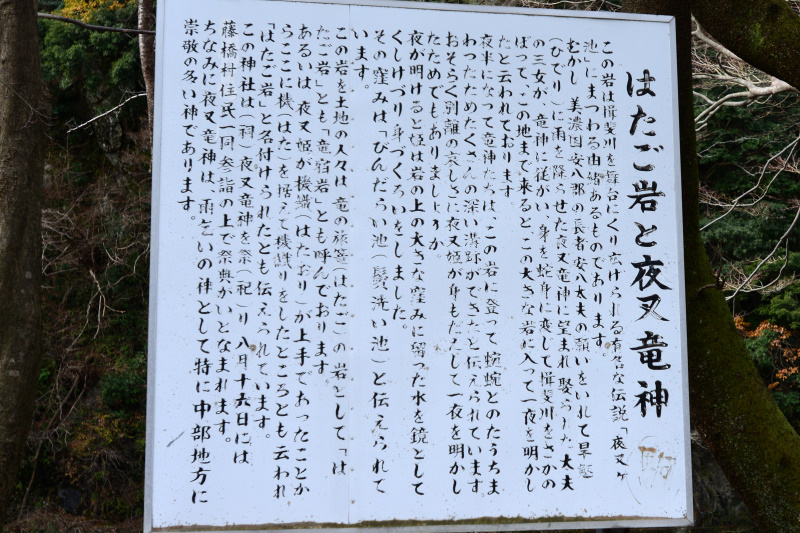 はたご岩と夜叉竜神
この岩は揖斐川を舞台にくり広げられる有名な伝説「夜叉ヶ
池」にまつわる由緒あるものであります。
むかし、美濃国安八郡の長者安八太夫の願いをいれて旱魃
(ひでり)に雨を降らせた夜叉竜神に望まれ娶らした太夫
の三女が、竜神に従がい、身を蛇身に変じて揖斐川をさかの
ぼって、この地まで来ると、この大きな岩に入って一夜を明かし
たと云われております。
夜半になって竜神たちは、この岩に登って蜿蜿とのたうちま
わったためたくさんの深い溝跡ができたと伝えられています
おそらく別離の哀しさに夜叉姫が身もだえして一夜を明かし
たためでもありましょうか。
夜が明けると姫は岩の上の大きな窪みに留った水を鏡として
くしけづり身づくろいをしました。
その窪みは「びんだらい池(鬂洗い池)と伝えられて
います。
この岩を土地の人々は、竜の旅篭(はたご)の岩として「は
たご岩」とも「竜宿岩」とも呼んでおります
あるいは、夜叉姫が機織(はたおり)が上手であったことか
らここに機(はた)を据えて機織りをしたところとも云われ
「はたご岩」と名付けられたとも伝えられています。
この神社は(祠)夜叉竜神を祭(祀)り八月十六日には
藤橋村住民一同参詣の上で祭典がいとなまれます。
ちなみに夜叉竜神は、雨乞いの神として特に中部地方に
崇敬の多い神であります。